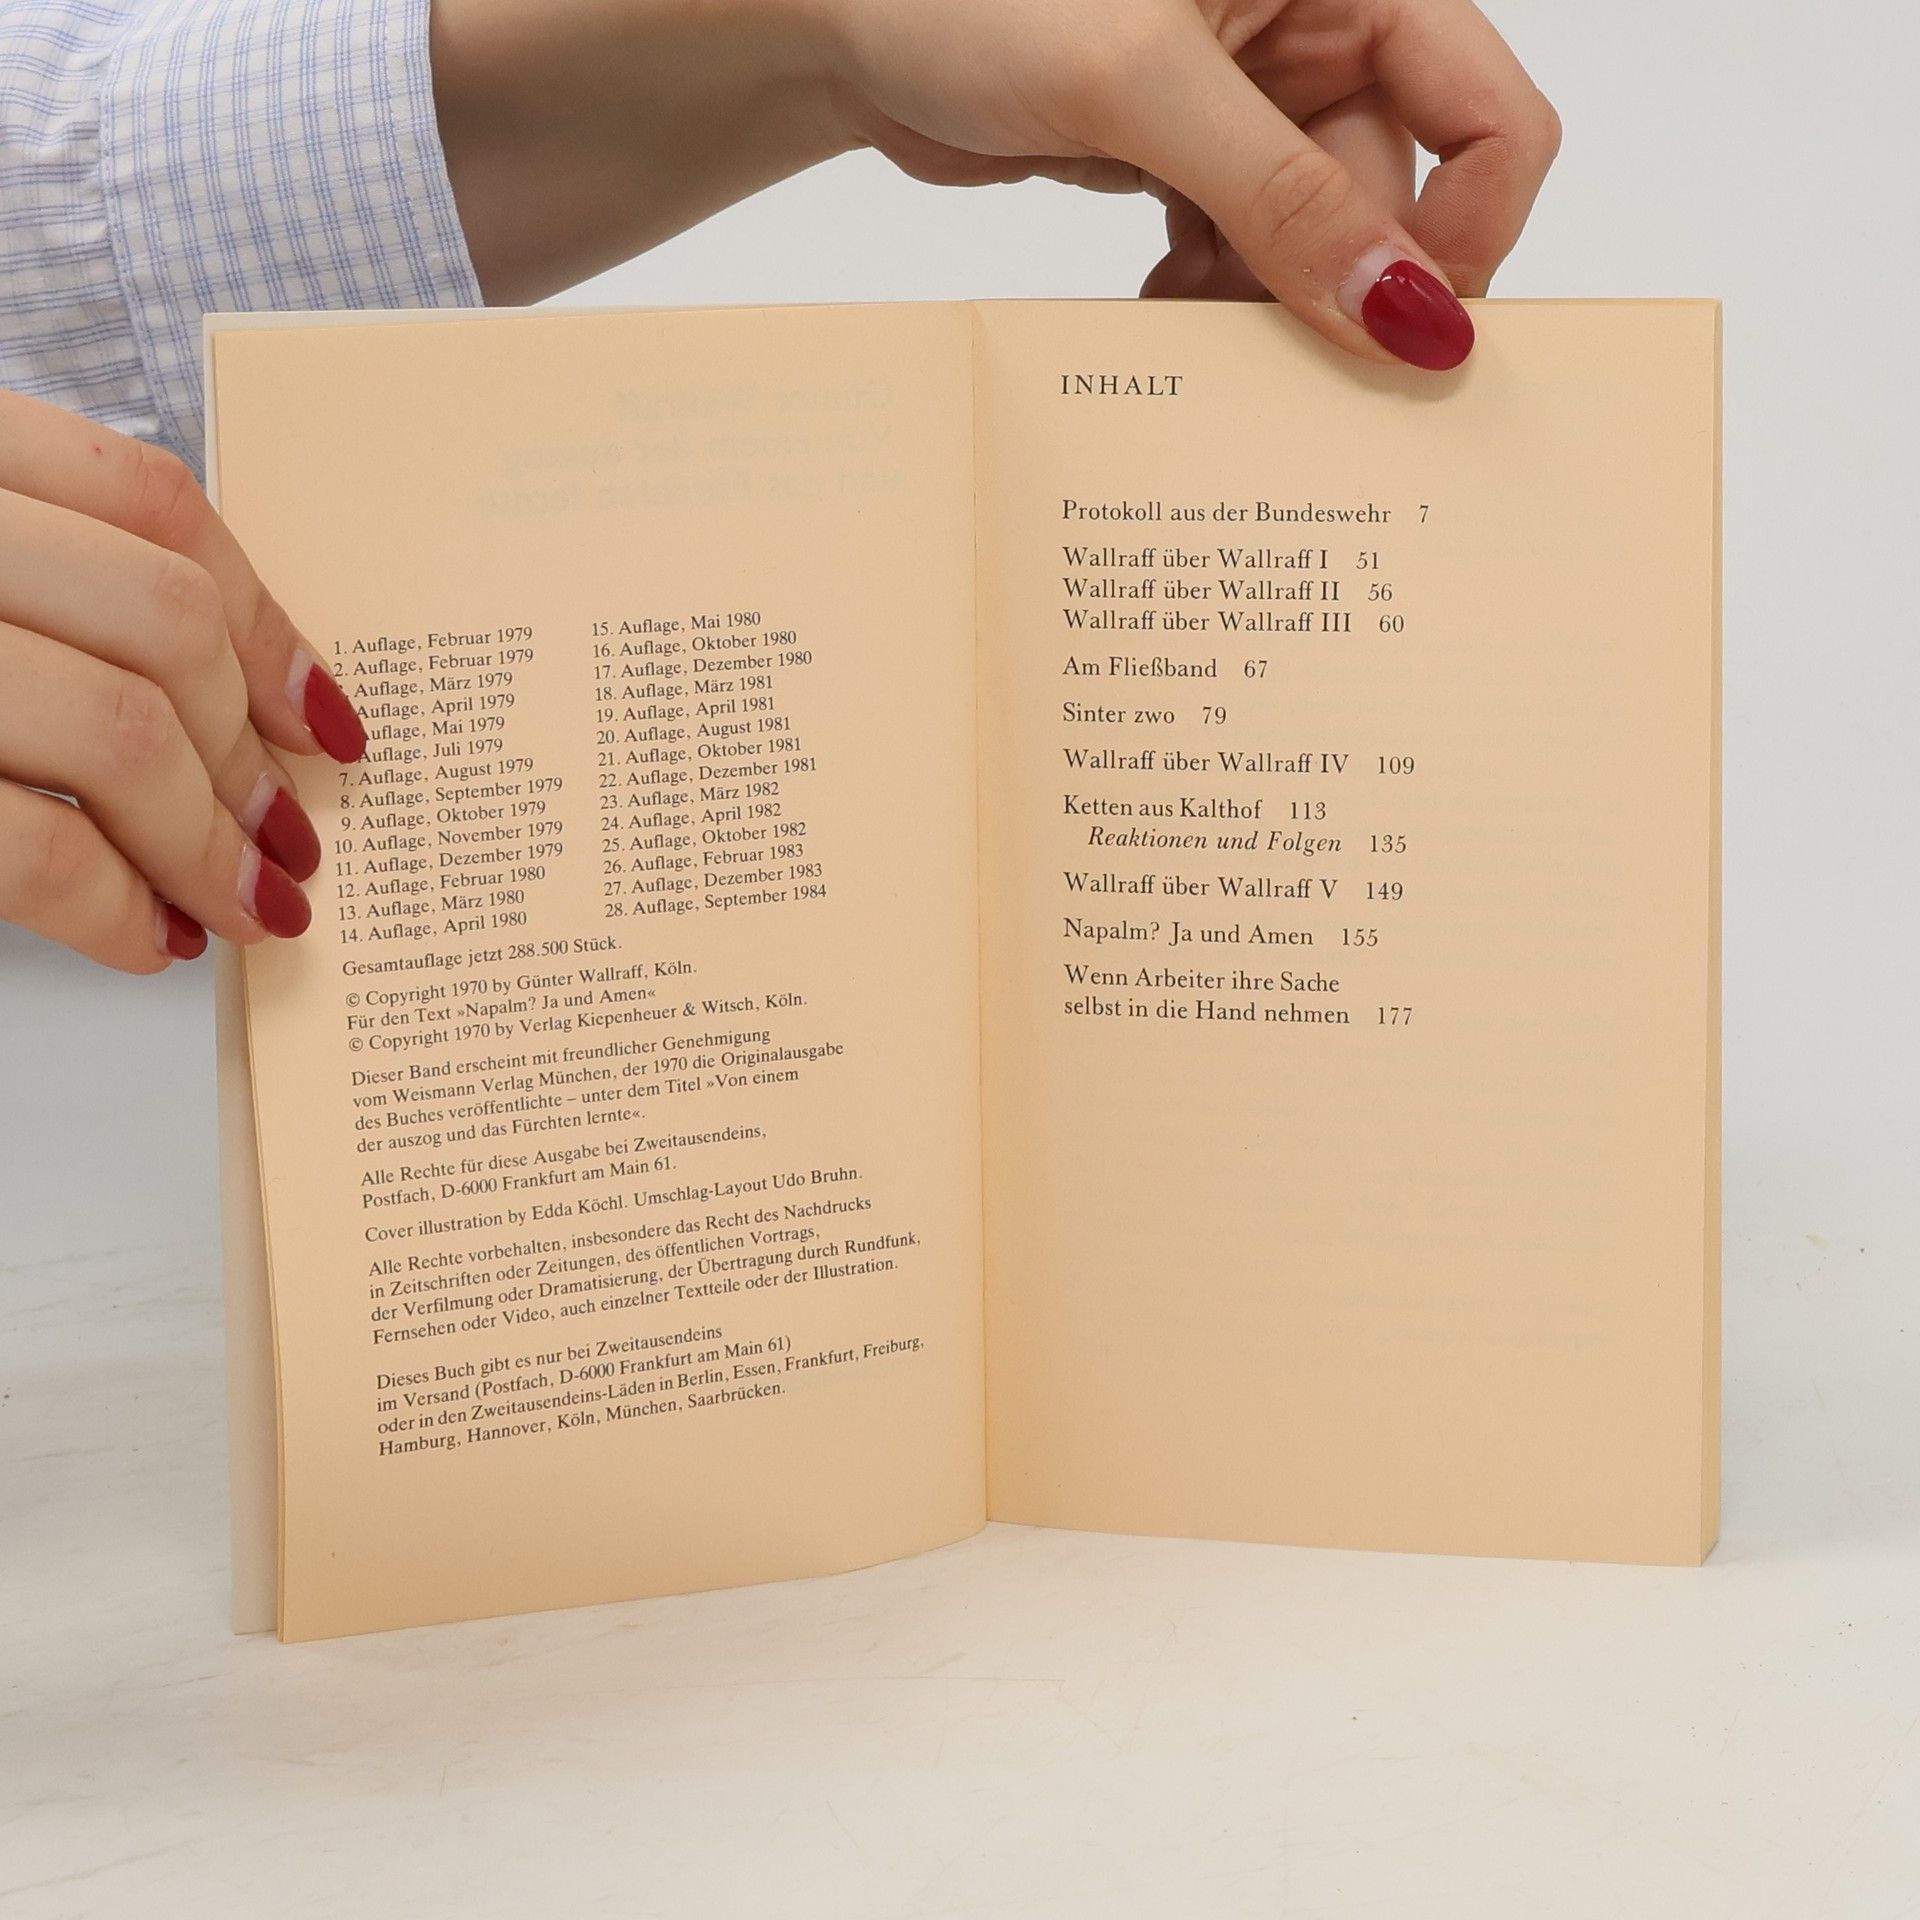 1. Auflage, Februar 1979
2. Auflage, Februar 1979
Auflage, März 1979
Auflage, April 1979
Auflage, Mai 1979
Auflage, Juli 1979
7. Auflage, August 1979
8. Auflage, September 1979
9. Auflage, Oktober 1979
10. Auflage, November 1979
11. Auflage, Dezember 1979
12. Auflage, Februar 1980
13. Auflage, März 1980
14. Auflage, April 1980
15. Auflage, Mai 1980
16. Auflage, Oktober 1980
17. Auflage, Dezember 1980
18. Auflage, März 1981
19. Auflage, April 1981
20. Auflage, August 1981
21. Auflage, Oktober 1981
22. Auflage, Dezember 1981
23. Auflage, März 1982
24. Auflage, April 1982
25. Auflage, Oktober 1982
26. Auflage, Februar 1983
27. Auflage, Dezember 1983
28. Auflage, September 1984
Gesamtauflage jetzt 288.500 Stück.
© Copyright 1970 by Günter Wallraff, Köln.
Für den Text »Napalm? Ja und Amen«
© Copyright 1970 by Verlag Kiepenheuer & Witsch, Köln.
Dieser Band erscheint mit freundlicher Genehmigung
vom Weismann Verlag München, der 1970 die Originalausgabe
des Buches veröffentlichte – unter dem Titel »Von einem
der auszog und das Fürchten lernte«.
Alle Rechte für diese Ausgabe bei Zweitausendeins,
Postfach, D-6000 Frankfurt am Main 61.
Cover illustration by Edda Köchl. Umschlag-Layout Udo Bruhn.
Alle Rechte vorbehalten, insbesondere das Recht des Nachdrucks
in Zeitschriften oder Zeitungen, des öffentlichen Vortrags,
der Verfilmung oder Dramatisierung, der Übertragung durch Rundfunk,
Fernsehen oder Video, auch einzelner Textteile oder der Illustration.
Dieses Buch gibt es nur bei Zweitausendeins
im Versand (Postfach, D-6000 Frankfurt am Main 61)
oder in den Zweitausendeins-Läden in Berlin, Essen, Frankfurt, Freiburg,
Hamburg, Hannover, Köln, München, Saarbrücken.
INHALT
Protokoll aus der Bundeswehr 7
Wallraff über Wallraff I 51
Wallraff über Wallraff II 56
Wallraff über Wallraff III 60
Am Fließband 67
Sinter zwo 79
Wallraff über Wallraff IV 109
Ketten aus Kalthof 113
Reaktionen und Folgen 135
Wallraff über Wallraff V 149
Napalm? Ja und Amen 155
Wenn Arbeiter ihre Sache
selbst in die Hand nehmen 177